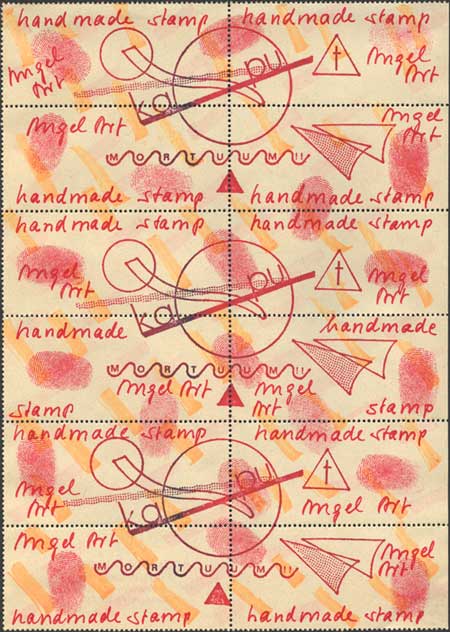 handmade stamp handmade stamp
Angel Art Angel Art
ka pu
†
Angel Art Angel Art
MORTUUM!!
handmade stamp handmade stamp
handmade stamp handmade stamp
Angel Art Angel Art
ka pu
†
handmade handmade
MORTUUM!!
Angel Art Angel Art
stamp stamp
handmade stamp handmade stamp
ka pu
†
Angel Art Angel Art
Angel Art Angel Art
MORTUUM!!
handmade stamp handmade stamp